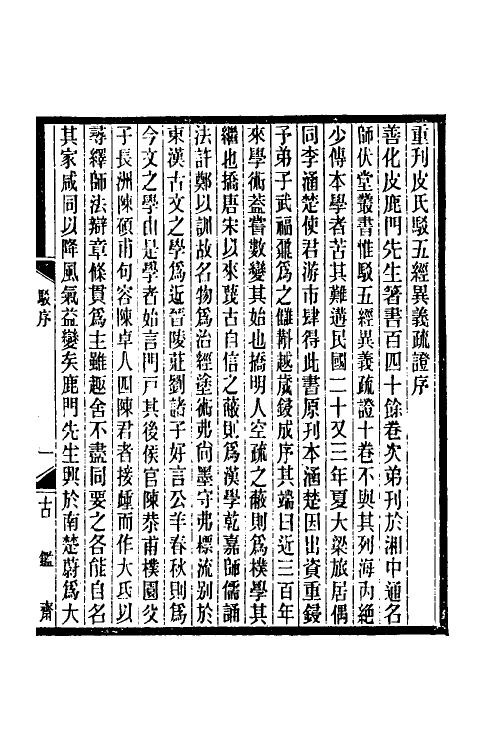 重刊皮氏駁五經異義疏證序
善化皮鹿門先生箸書百四十餘卷次弟刊於湘中通名
師伏堂叢書惟駁五經異義疏證十卷不與其列海內絕
少傳本學者苦其難遘民國二十又三年夏大梁旅居偶
同李涵楚使君游市肆得此書原刊本涵楚因出資重鋟
予弟子武福鼐爲之讎斠越歲鋟成序其端曰近三百年
來學術葢嘗數變其始也撟明人空疏之蔽則爲樸學其
繼也撟唐宋以來蔑古自信之蔽則爲漢學乾嘉師儒誦
法許鄭以訓故名物爲治經塗術弗尚墨守弗標流別於
東漢古文之學爲近晉陵莊劉諸子好言公羊春秋則爲
今文之學由是學者始言門戸其後侯官陳恭甫樸園父
子長洲陳碩甫句容陳卓人四陳君者接踵而作大氐以
尋繹師法辯章條貫爲主雖趣舍不盡同要之各能自名
其家咸同以降風氣益變矣鹿門先生興於南楚蔚爲大
駁序
一
古鑑齋